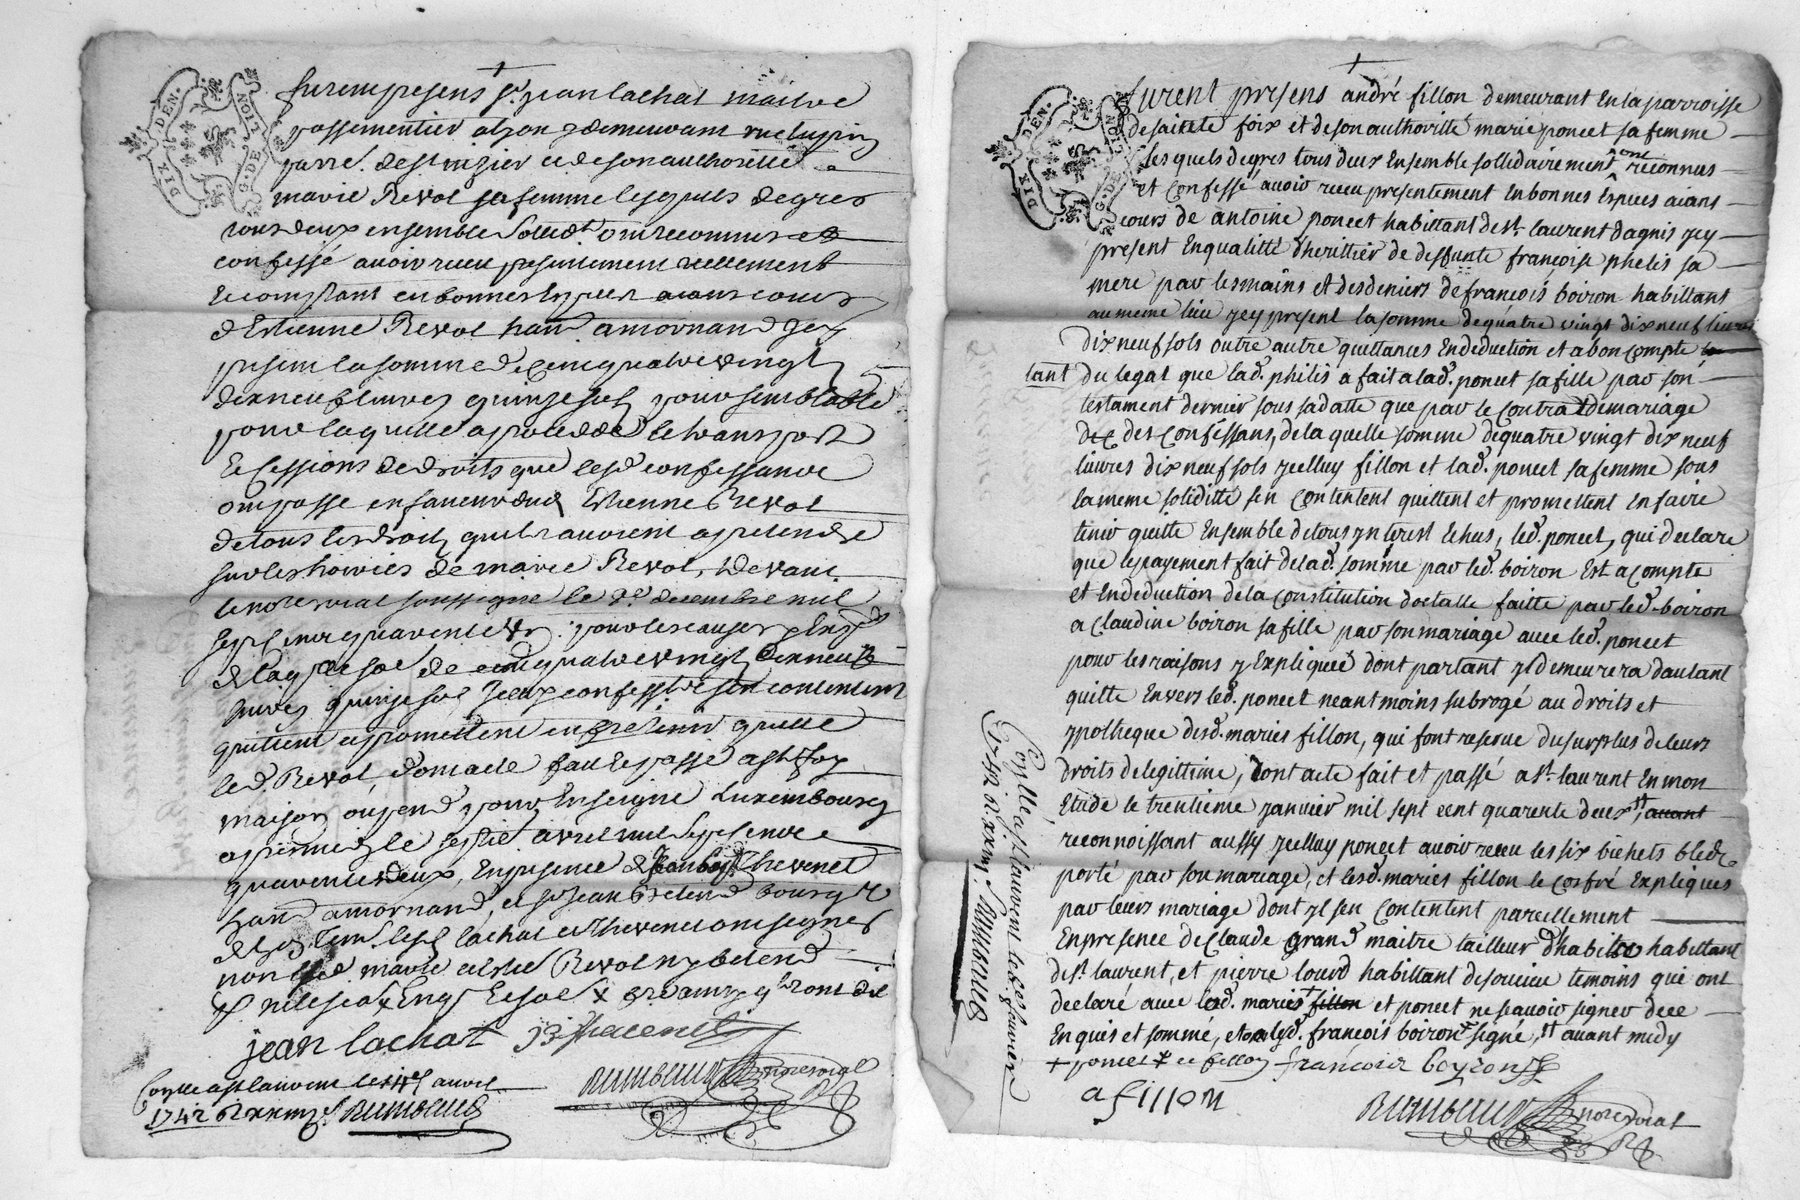 DIX DEN.
G. DE
NOIT
furent presens sr. jean lachat maitre
passementier a lyon y demeurant rue lupin
parre. de st nizier et de son authoritté
marie Revol sa femme lesquels de gres
tous deux ensemble sollidt. ont reconnus et
confessé avoir receu presentement reellement
et comptant en bonnes especes aiant cours
d'Estienne Revol hant. a mornand yey
present la somme de cent quatre vingt
dix neuf livres quinze sols pour semblable
pour laquelle a procedde le transport
et cessions de droits que lesd. confessants
ont passe en faveur dud. Estienne Revol
de tous les droits quils avoient a pretendre
sur les hoiries de marie Revol, devant
le nore. roial soussigné le decembre mil
sept cent quarente pour les causes y Exp.
de laquelle so. de cent quatre vingt dix neuf
livres quinze sols yceux confessants sen contentent
quittent et promettent en faire tenir quitte
led. Revol, dont acte fait et passé a st. foy
maison ou pend pour Enseigne Luxembourg
apres midy le sept. avril mil sept cent
quarente deux, En presence de Jean bapt. thevenet
hant. a mornand, et sr. jean
de lyon tem. lesd. lachat et thevenet ont signes
non lad. marie et led. Revol ny
de ce Enq. et so.
jean lachat JB thevenet
Collé a st laurent le avril
1742
furent presens andré fillon demeurant En la parroisse
de sainte foix et de son authoritté marie poncet sa femme
lesquels de gres tous deux Ensemble sollidairement ont reconnus
et confessé avoir receu presentement En bonnes Especes aians
cours de antoine poncet habittant de st. laurent dagnis yey
present En qualitté dherittier de deffunte françoise phelis sa
mere par les mains et des deniers de françois boiron habittant
au meme lieu yey present la somme de quatre vingt dix neuf livres
dix neuf sols outre autre quittances En deduction et a bon compte
tant du legat que lad. philis a fait a lad. poncet sa fille par son
testament dernier sous sa datte que par le contrat de mariage
des confessans, de la quelle somme de quatre vingt dix neuf
livres dix neuf sols ycelluy fillon et lad. poncet sa femme sous
la meme soliditté sen contentent quittent et promettent En faire
tenir quitte Ensemble de tous ynterest Echus, led. poncet, qui declare
que le payement fait de lad. somme par led. boiron Est a compte
et En deduction de la constitution dottalle faitte par led. boiron
a claudine boiron sa fille par son mariage avec led. poncet
pour les raisons y Expliqueé dont partant yl demeurera dautant
quitte Envers led. poncet neantmoins subrogé au droits et
ypotheque desd. maries fillon, qui font reserve du surplus de leurs
droits de legittime, dont acte fait et passé a st. laurent En mon
Etude le trentieme janvier mil sept cent quarente deux, avant
reconnoissant aussy ycelluy poncet avoir receu les six bichets bled
porté par son mariage, et lesd. maries fillon le coffré Expliques
par leurs mariage dont yl sen contentent pareillement
En presence de claude grand maitre tailleur dhabits habittant
de st. laurent, et pierre lourd habittant de soucieu temoins qui ont
declaré avec lesd. maries fillon et poncet ne scavoir signer de ce
En quis et sommé, et a led. françois boiron signé, avant midy
+ poncet et fillon françois boyron
a fillon
Collé a st laurent le 2e fevrier